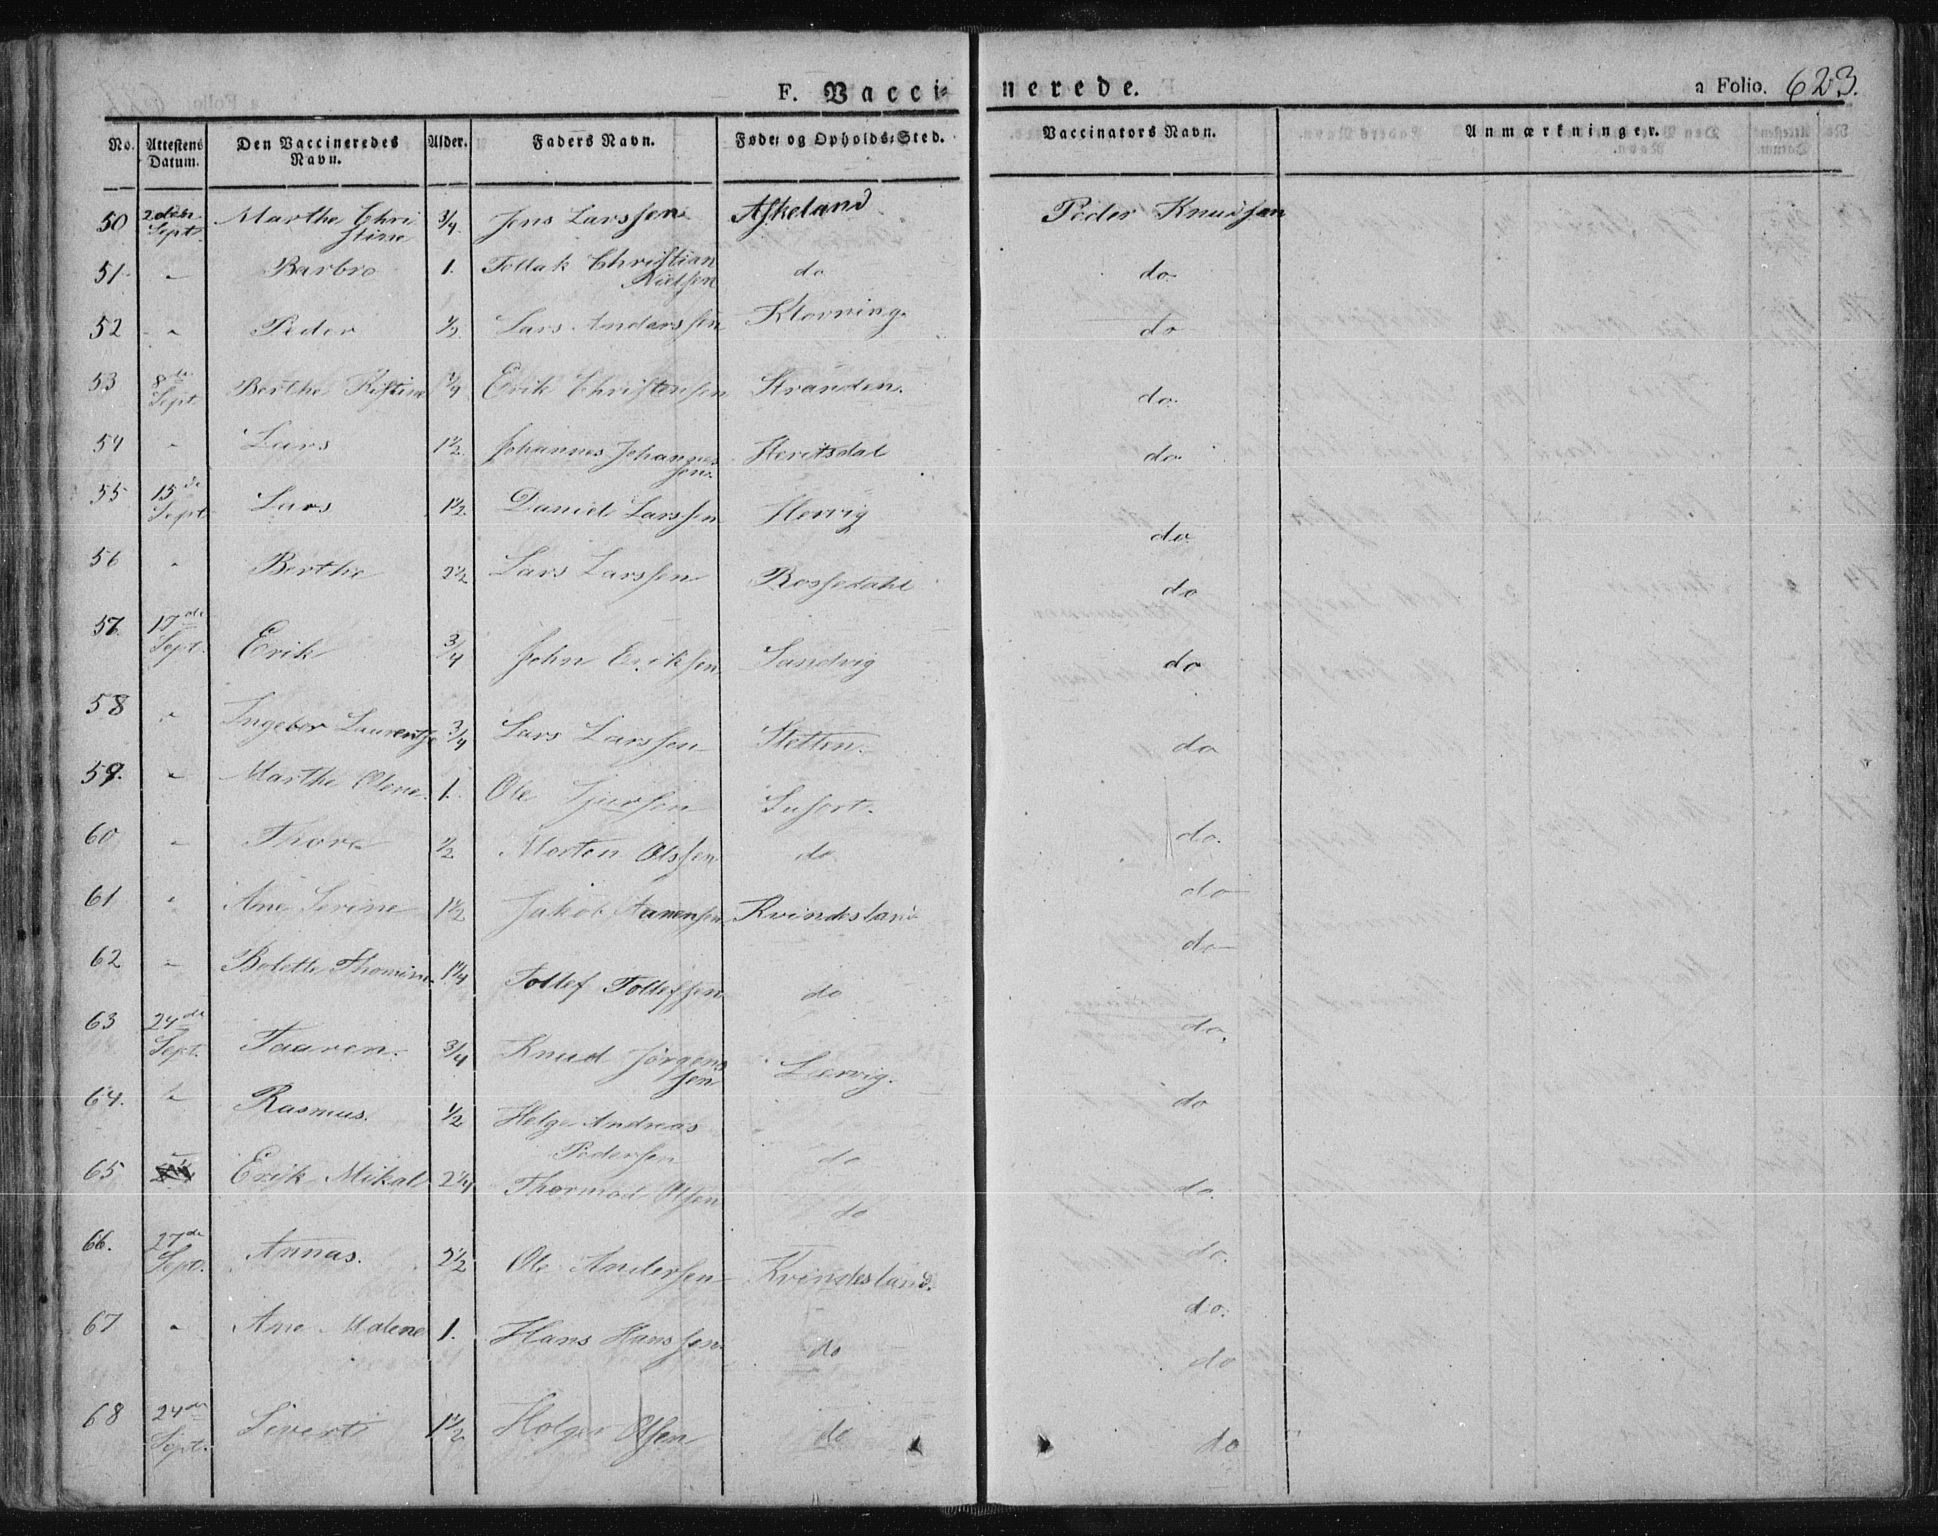 F. Vaccinerede. a Folio. 623.
No. Attestens Datum. Den Vaccineredes Navn. Alder. Faders Navn. Føde- og Opholds-Sted. Vaccinators Navn. Anmærkninger.
50 2den Sept. Marthe Christine 3/4. Jens Larssen Askeland Peder Knudsen
51 " Barbro 1. Tollak Christian do do
52 " Peder Lars Anderssen do
53 8de Sept. Berthe Erik Christensen Stranden. do
54 " Lars 1 1/2 Johannes Johannessen do
55 15de Sept. Lars 1 1/2 Daniel Larssen Hervig do
56 " Berthe 2 1/2 Lars Larssen Rossedahl do
57. 17de Sept. Erik 3/4 John Eriksen Sandvig do
58 " Ingebor Laurentse 3/4 Lars Larssen Sletten. do
59. " Marthe Olene. 1. Ole Sjursen do.
60 " Thore 1/2 Morten Olssen do do
61 " Ane Serine 1 1/2 Jakob Kvindesland do
62 " Bolette Thomine 1 1/4 Tollef Tollefsen do do.
63 24de Sept. Taaren. 3/4 Knud Jørgenssen Lervig. do
64. " Rasmus. 1/2 Helge Andreas Pedersen do do.
65 Erik Mikal 2 1/4 Thormod Olsen do do.
66. 27de Sept. Annas. 2 1/2 Ole Andersen Kvindesland. do.
67 " Ane Malene 1. Hans Hanssen do do
68 24de Sept. Sivert 1 1/2 Holger Olsen do do